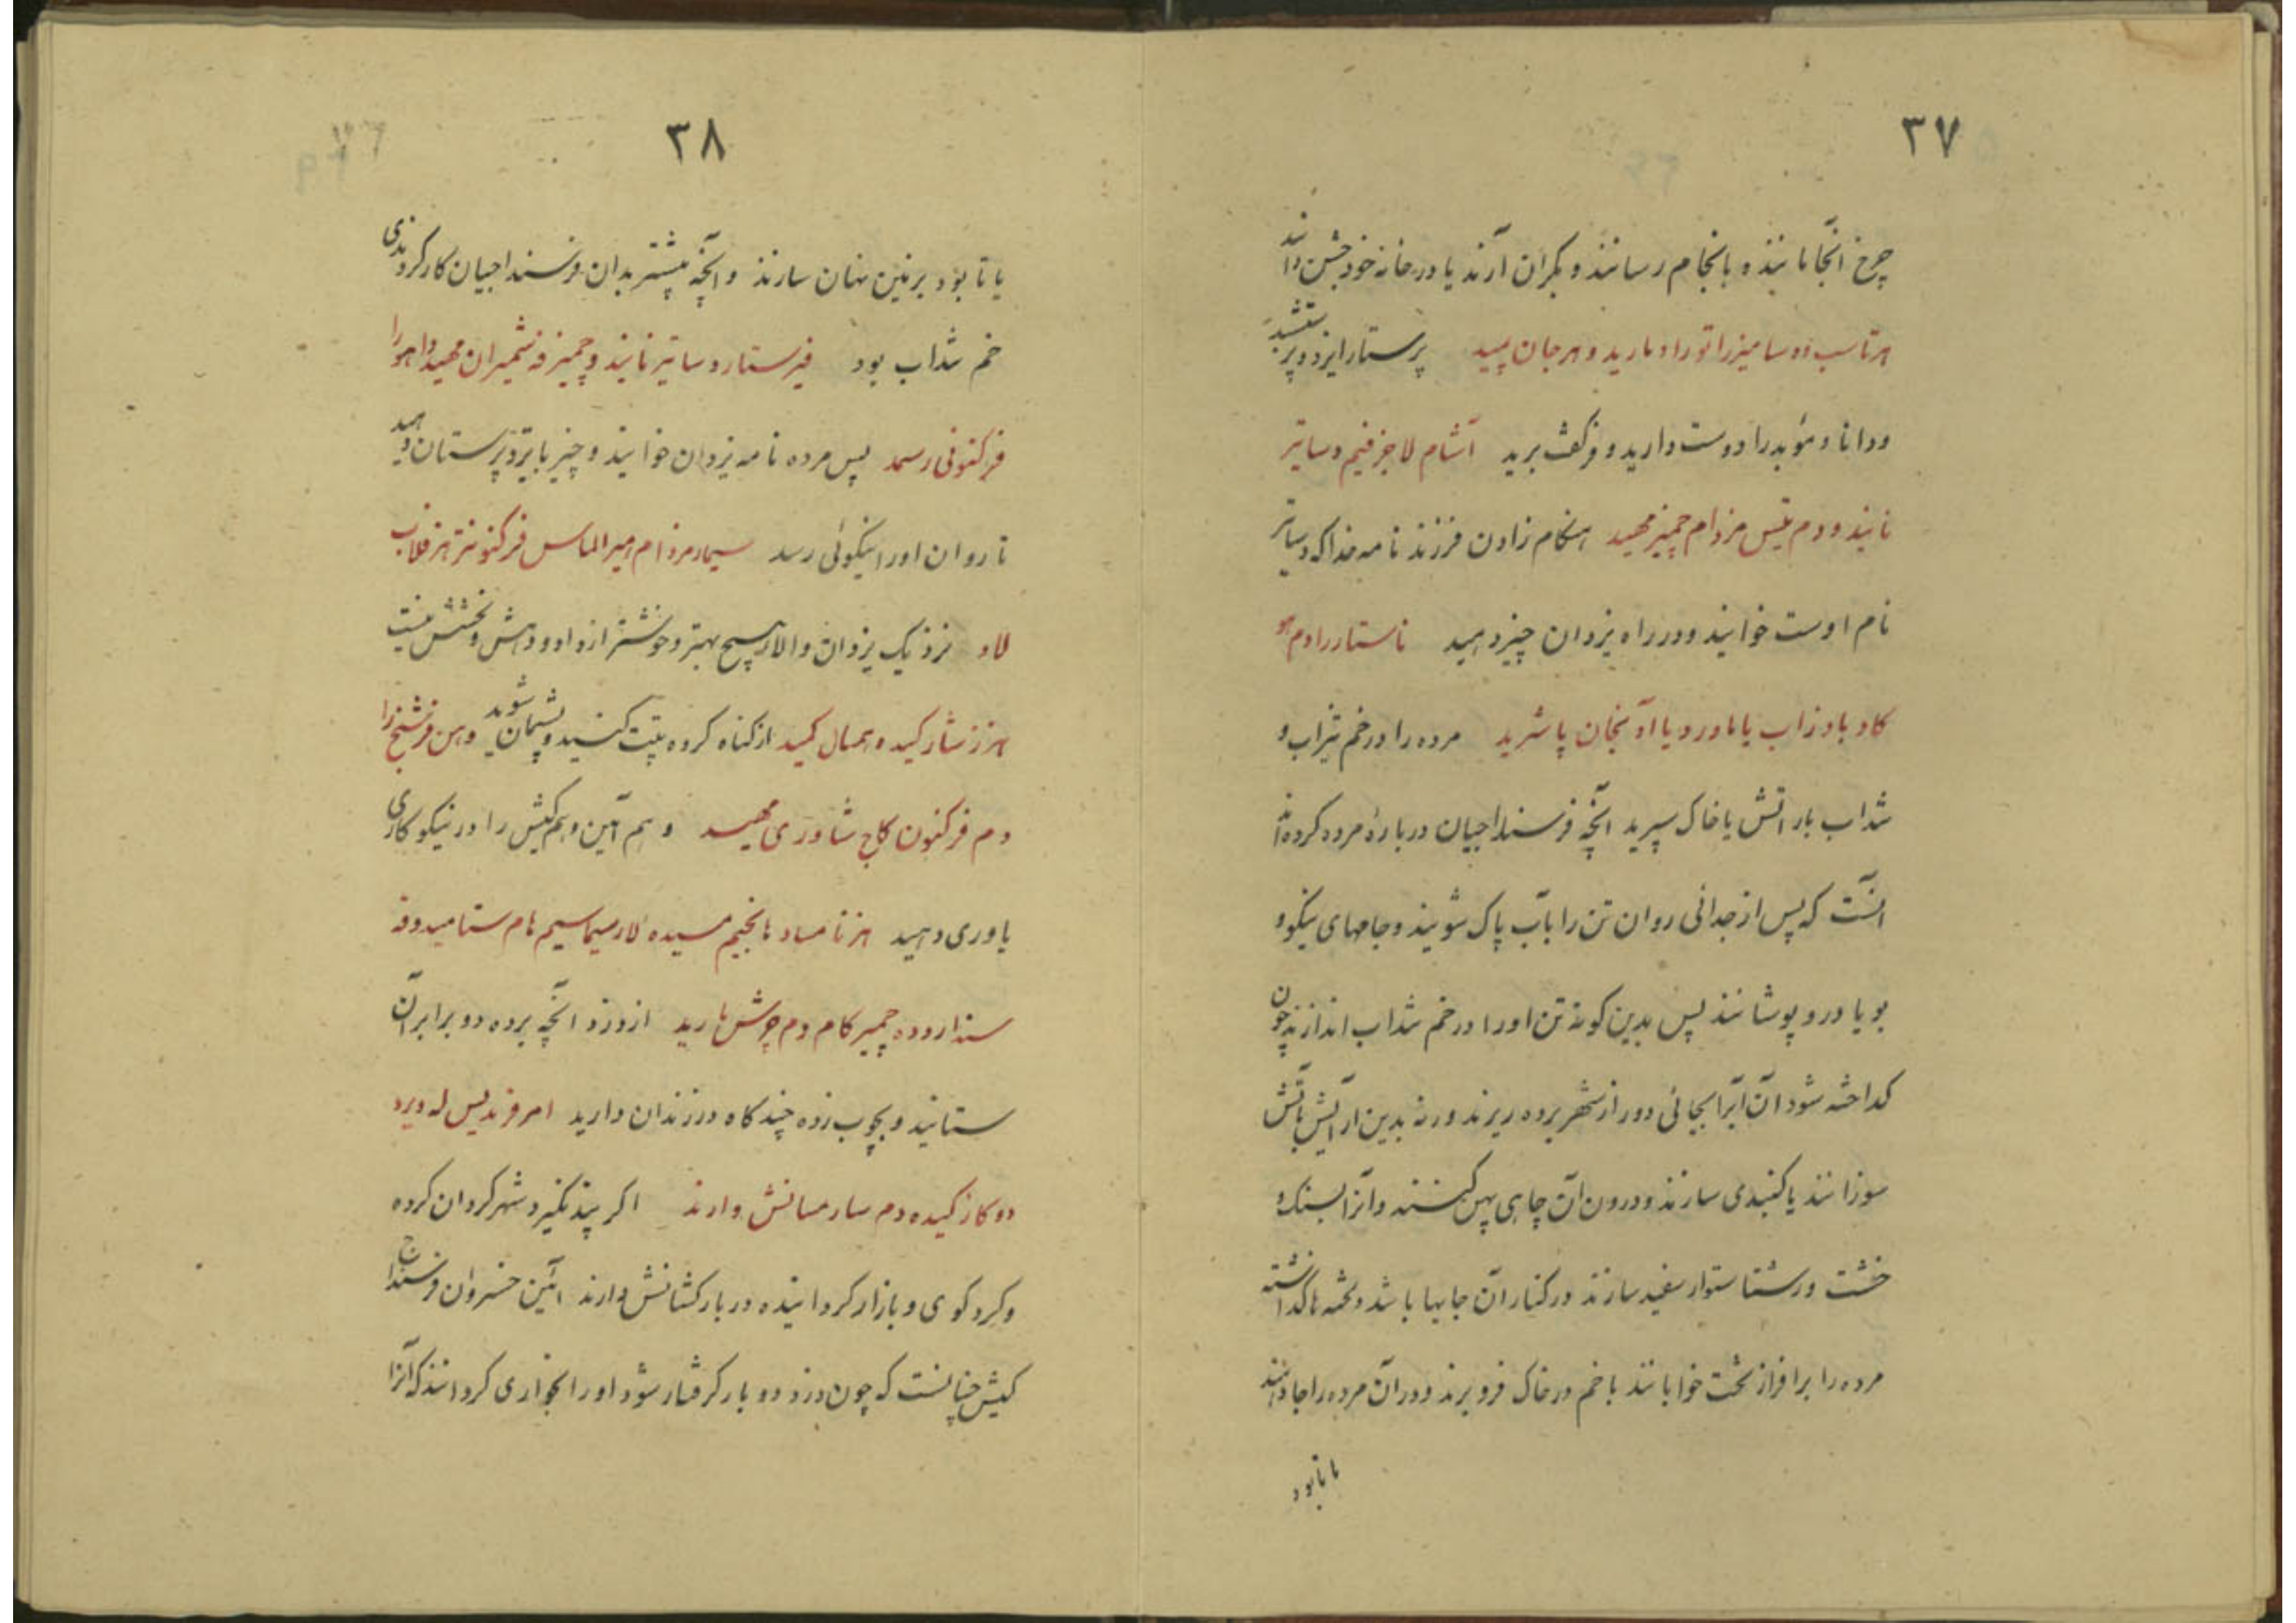 ۳۷
چرخ آنجا مانند و بانجام رسانند و بکران آرند یا در خانه خود جشن دانند
هرتاسب دوسا میزرا تورا د مارید و هرجان پمید پرستار ایزد پرستشید
و دانا و موبد را دوست دارید و فرگفت برید آشام لا جز فنیم دساتیر
نانید و دم تیس مزدام چمیز مهید هنکام زادن فرزند نامه خدا که دساتیر
نام اوست خوانید و در راه یزدان چیز دهید تاستار را دم هو
کاد باد زاب یا ماور د یا آد نجان پاشرید مرده را در خم تیزاب و
شداب بار اتش یا خاک سپرید آنچه فرسنداجیان دربارۀ مرده کرده‌اند
انست که پس از جدائی روان تن را باب پاک شویند و جامهای نیکو و
بویا درو پوشانند پس بدین کونه تن اورا در خم شداب اندازند چون
کداخته شود آن آبرا بجائی دور از شهر برده ریزند ورنه بدین ارایش باتش
سوزانند یا کنبدی سازند و درون آن چاهی پهن کنند و آنرا بسنک و
خشت و رستا ستوار سفید سازند در کنار آن جایها باشد و تخمه ها کداشته
مرده را بر افراز تخت خوابانند یا خم در خاک فرو برند و در آن مرده را جا دهند
یا تابود
۳۸
یا تابود بر زمین نهان سازند و آنچه پیشتر بدان فرسنداجیان کار کردندی
خم شداب بود فیرستار د ساتیر نانید و چمیز فه شمیران مهید و اهو را
فرکنونی رسمد پس مرده نامه یزدان خوانید و چیز بایزدپرستان دهید
تا روان اورا نیکوئی رسد سیمار مزدام امیر الماس فرکنو نتر هز فلاب
لاد نزدیک یزدان والا هیچ بهتر و خوشتر از داد و دهش و بخشش نیست
هزز شار کید و همال کمید از کناه کرده پتت کنید و پشیمان شوید و هن فرشنج را
دم فرکنون کاج شاوری مهید و هم آئین و هم کیش را در نیکوکاری
یاوری دهید هز تا مساد هانجیم مسیده لار سیما سیم هام ستامید و فه
سندار ووده چمیر کام دم جوش هارید از دزد آنچه برده دو برابر آن
ستانید و بچوب زده چند کاه در زندان دارید امر فرندیس له ویرد
دو کاز کیده دم سار مسانش وارند اکر پند نکیرد شهر کردان کرده
و کرد کوی و بازار کردانیده در بار کشانش دارند ائین خسروان فرسنداج
کیش چنانست که چون دزد دو بار کرفتار شود اورا بخواری کردانند که آنرا